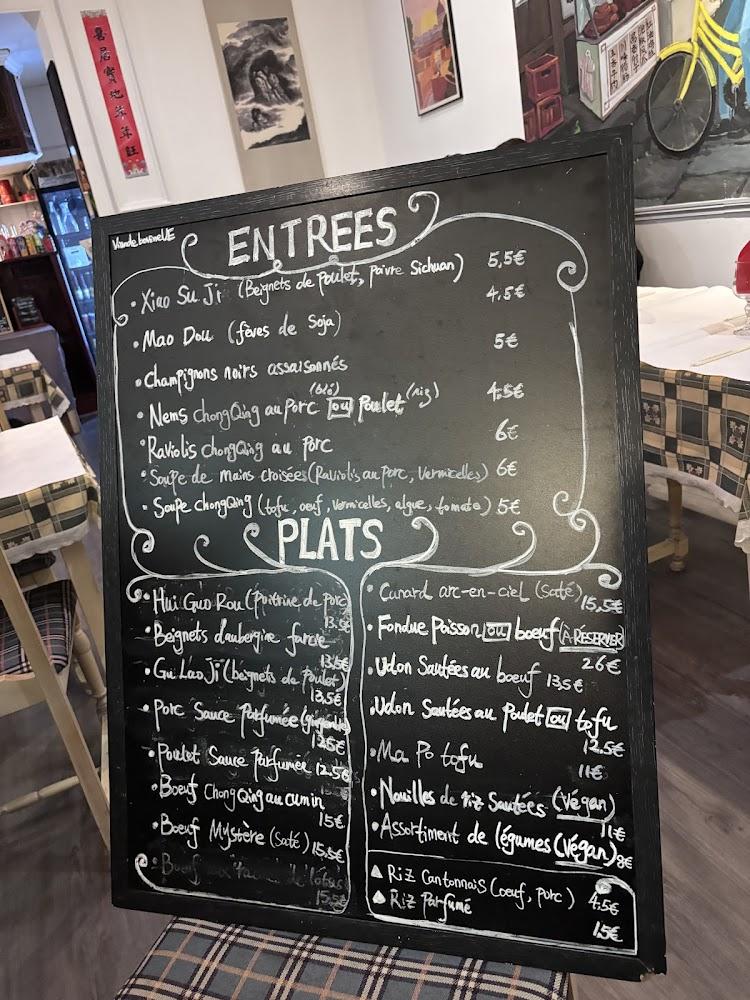 喜居寶地年年旺
Viande bovine UE
ENTREES
• Xiao Su Ji (Beignets de Poulet, poivre Sichuan) 5,5€
• Mao Dou (fèves de Soja) 4,5€
• Champignons noirs assaisonnés 5€
• Nems ChongQing au Porc (blé) ou Poulet (riz) 4,5€
• Raviolis ChongQing au Porc 6€
• Soupe de mains croisées (Raviolis au porc, Vermicelles) 6€
• Soupe ChongQing (tofu, oeuf, vermicelles, algue, tomate) 5€
PLATS
• Hui Guo Rou (Poitrine de porc) 13,5€
• Beignets d'aubergine farcie 13,5€
• Gu Lao Ji (beignets de poulet) 13,5€
• Porc Sauce Parfumée 12,5€
• Poulet Sauce Parfumée 12,5€
• Boeuf ChongQing au cumin 15€
• Boeuf Mystère (Saté) 15,5€
Boeuf de lotus 15,5€
• Canard arc-en-ciel (Saté) 15,5€
• Fondue Poisson ou boeuf (A RESERVER) 26€
• Udon Sautées au boeuf 13,5€
• Udon Sautées au Poulet ou tofu 12,5€
• Ma Po tofu 11€
• Nouilles de riz Sautées (Végan) 11€
• Assortiment de légumes (Végan) 8€
▲ Riz Cantonnais (oeuf, porc) 4,5€
▲ Riz Parfumé 1,5€